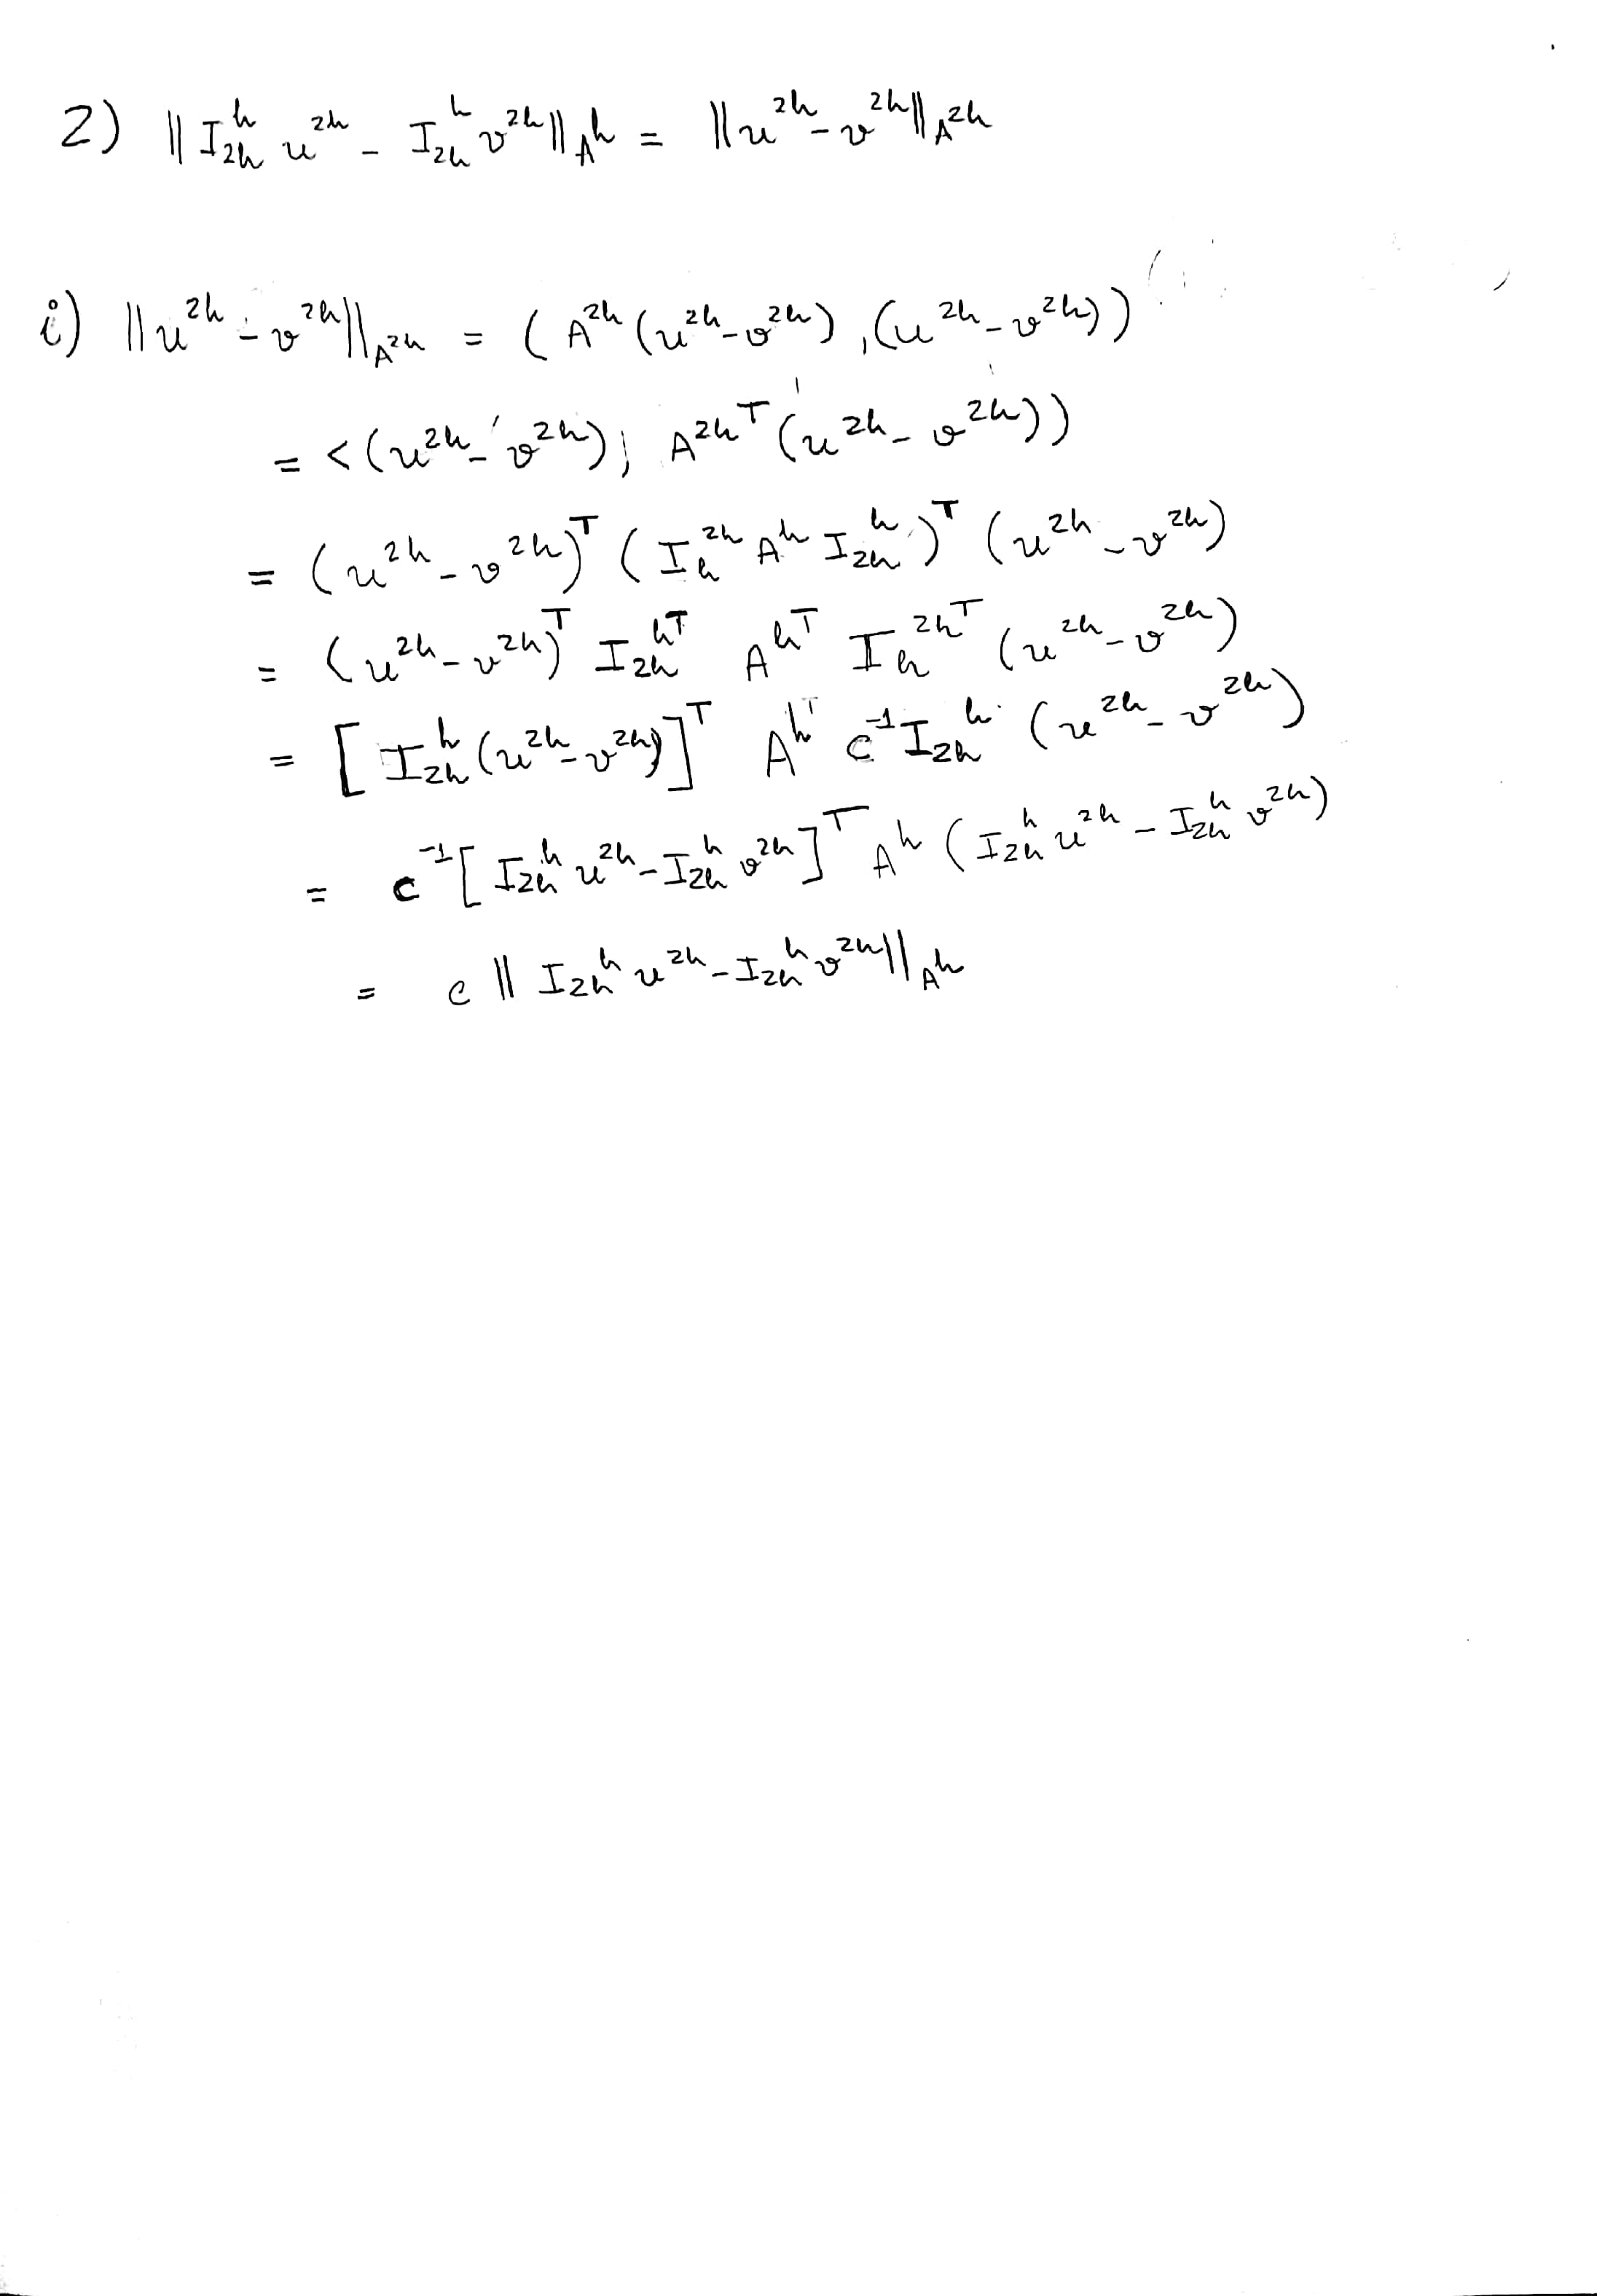 2) ‖ I_{2h}^{h} u^{2h} - I_{2h}^{h} v^{2h} ‖_{A^h} = ‖ u^{2h} - v^{2h} ‖_{A^{2h}}
i) ‖ u^{2h} - v^{2h} ‖_{A^{2h}} = ( A^{2h} (u^{2h} - v^{2h}) , (u^{2h} - v^{2h}))
= < (u^{2h} - v^{2h}) ; A^{2h^T} (u^{2h} - v^{2h}))
= (u^{2h} - v^{2h})^T ( I_h^{2h} A^h I_{2h}^h )^T (u^{2h} - v^{2h})
= (u^{2h} - v^{2h})^T I_{2h}^{h^T} A^{h^T} I_h^{2h^T} (u^{2h} - v^{2h})
= [ I_{2h}^h (u^{2h} - v^{2h}) ]^T A^{h^T} c^{-1} I_{2h}^h (u^{2h} - v^{2h})
= c^{-1} [ I_{2h}^h u^{2h} - I_{2h}^h v^{2h} ]^T A^h ( I_{2h}^h u^{2h} - I_{2h}^h v^{2h})
= c ‖ I_{2h}^h u^{2h} - I_{2h}^h v^{2h} ‖_{A^h}